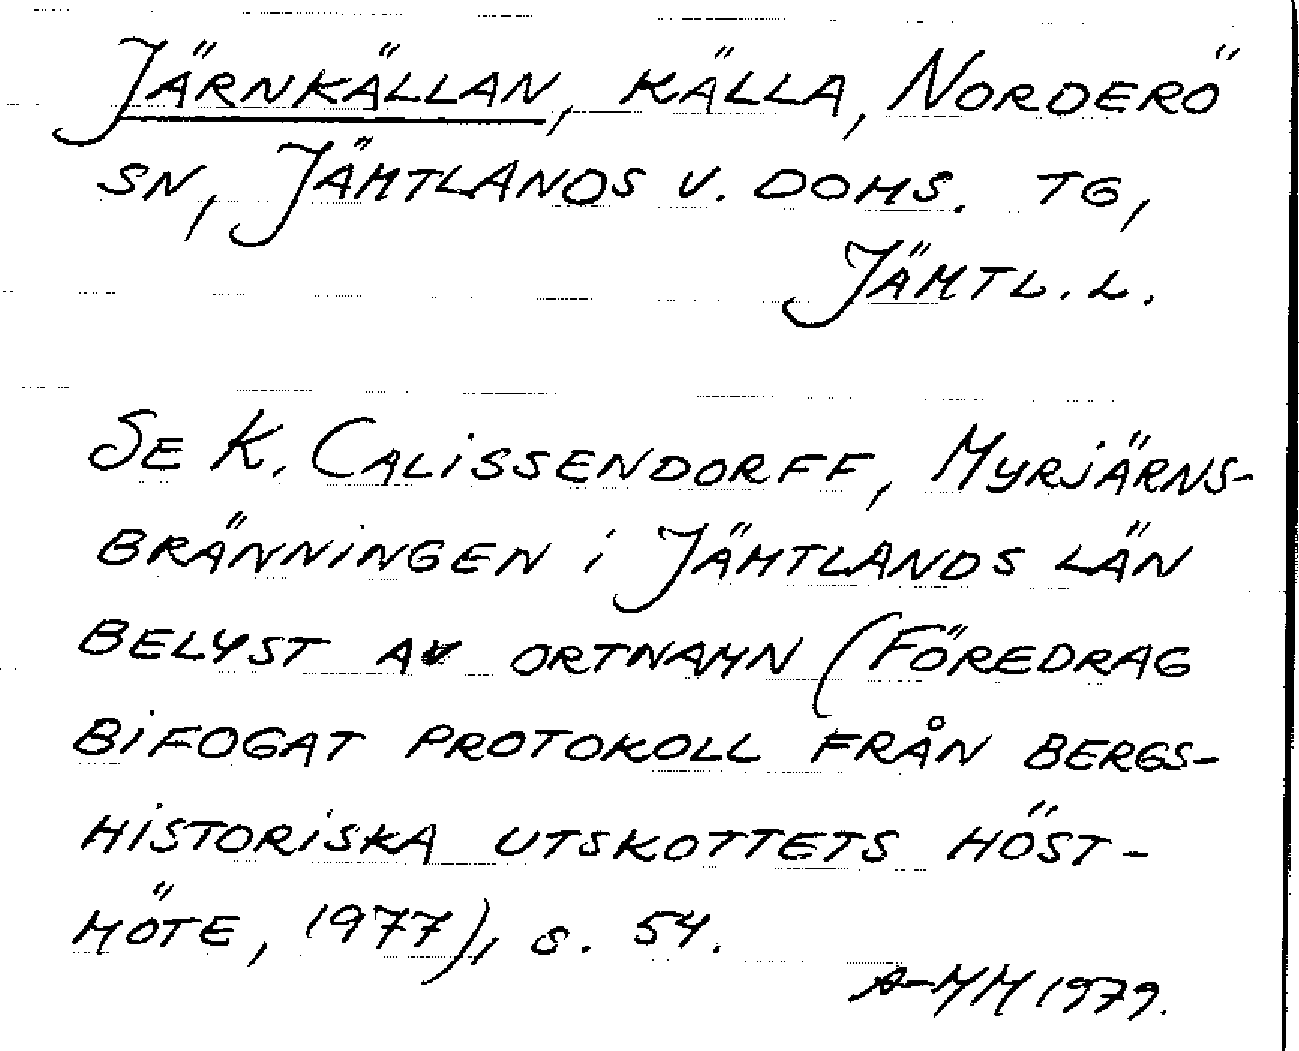 JÄRNKÄLLAN, KÄLLA, NORDERÖ
SN, JÄMTLANDS V. DOMS. TG,
JÄMTL. L.
SE K. CALISSENDORFF, MYRJÄRNS-
BRÄNNINGEN I JÄMTLANDS LÄN
BELYST AV ORTNAMN (FÖREDRAG
BIFOGAT PROTOKOLL FRÅN BERGS-
HISTORISKA UTSKOTTETS HÖST-
MÖTE, 1977), s. 54.
A-MM 1979.